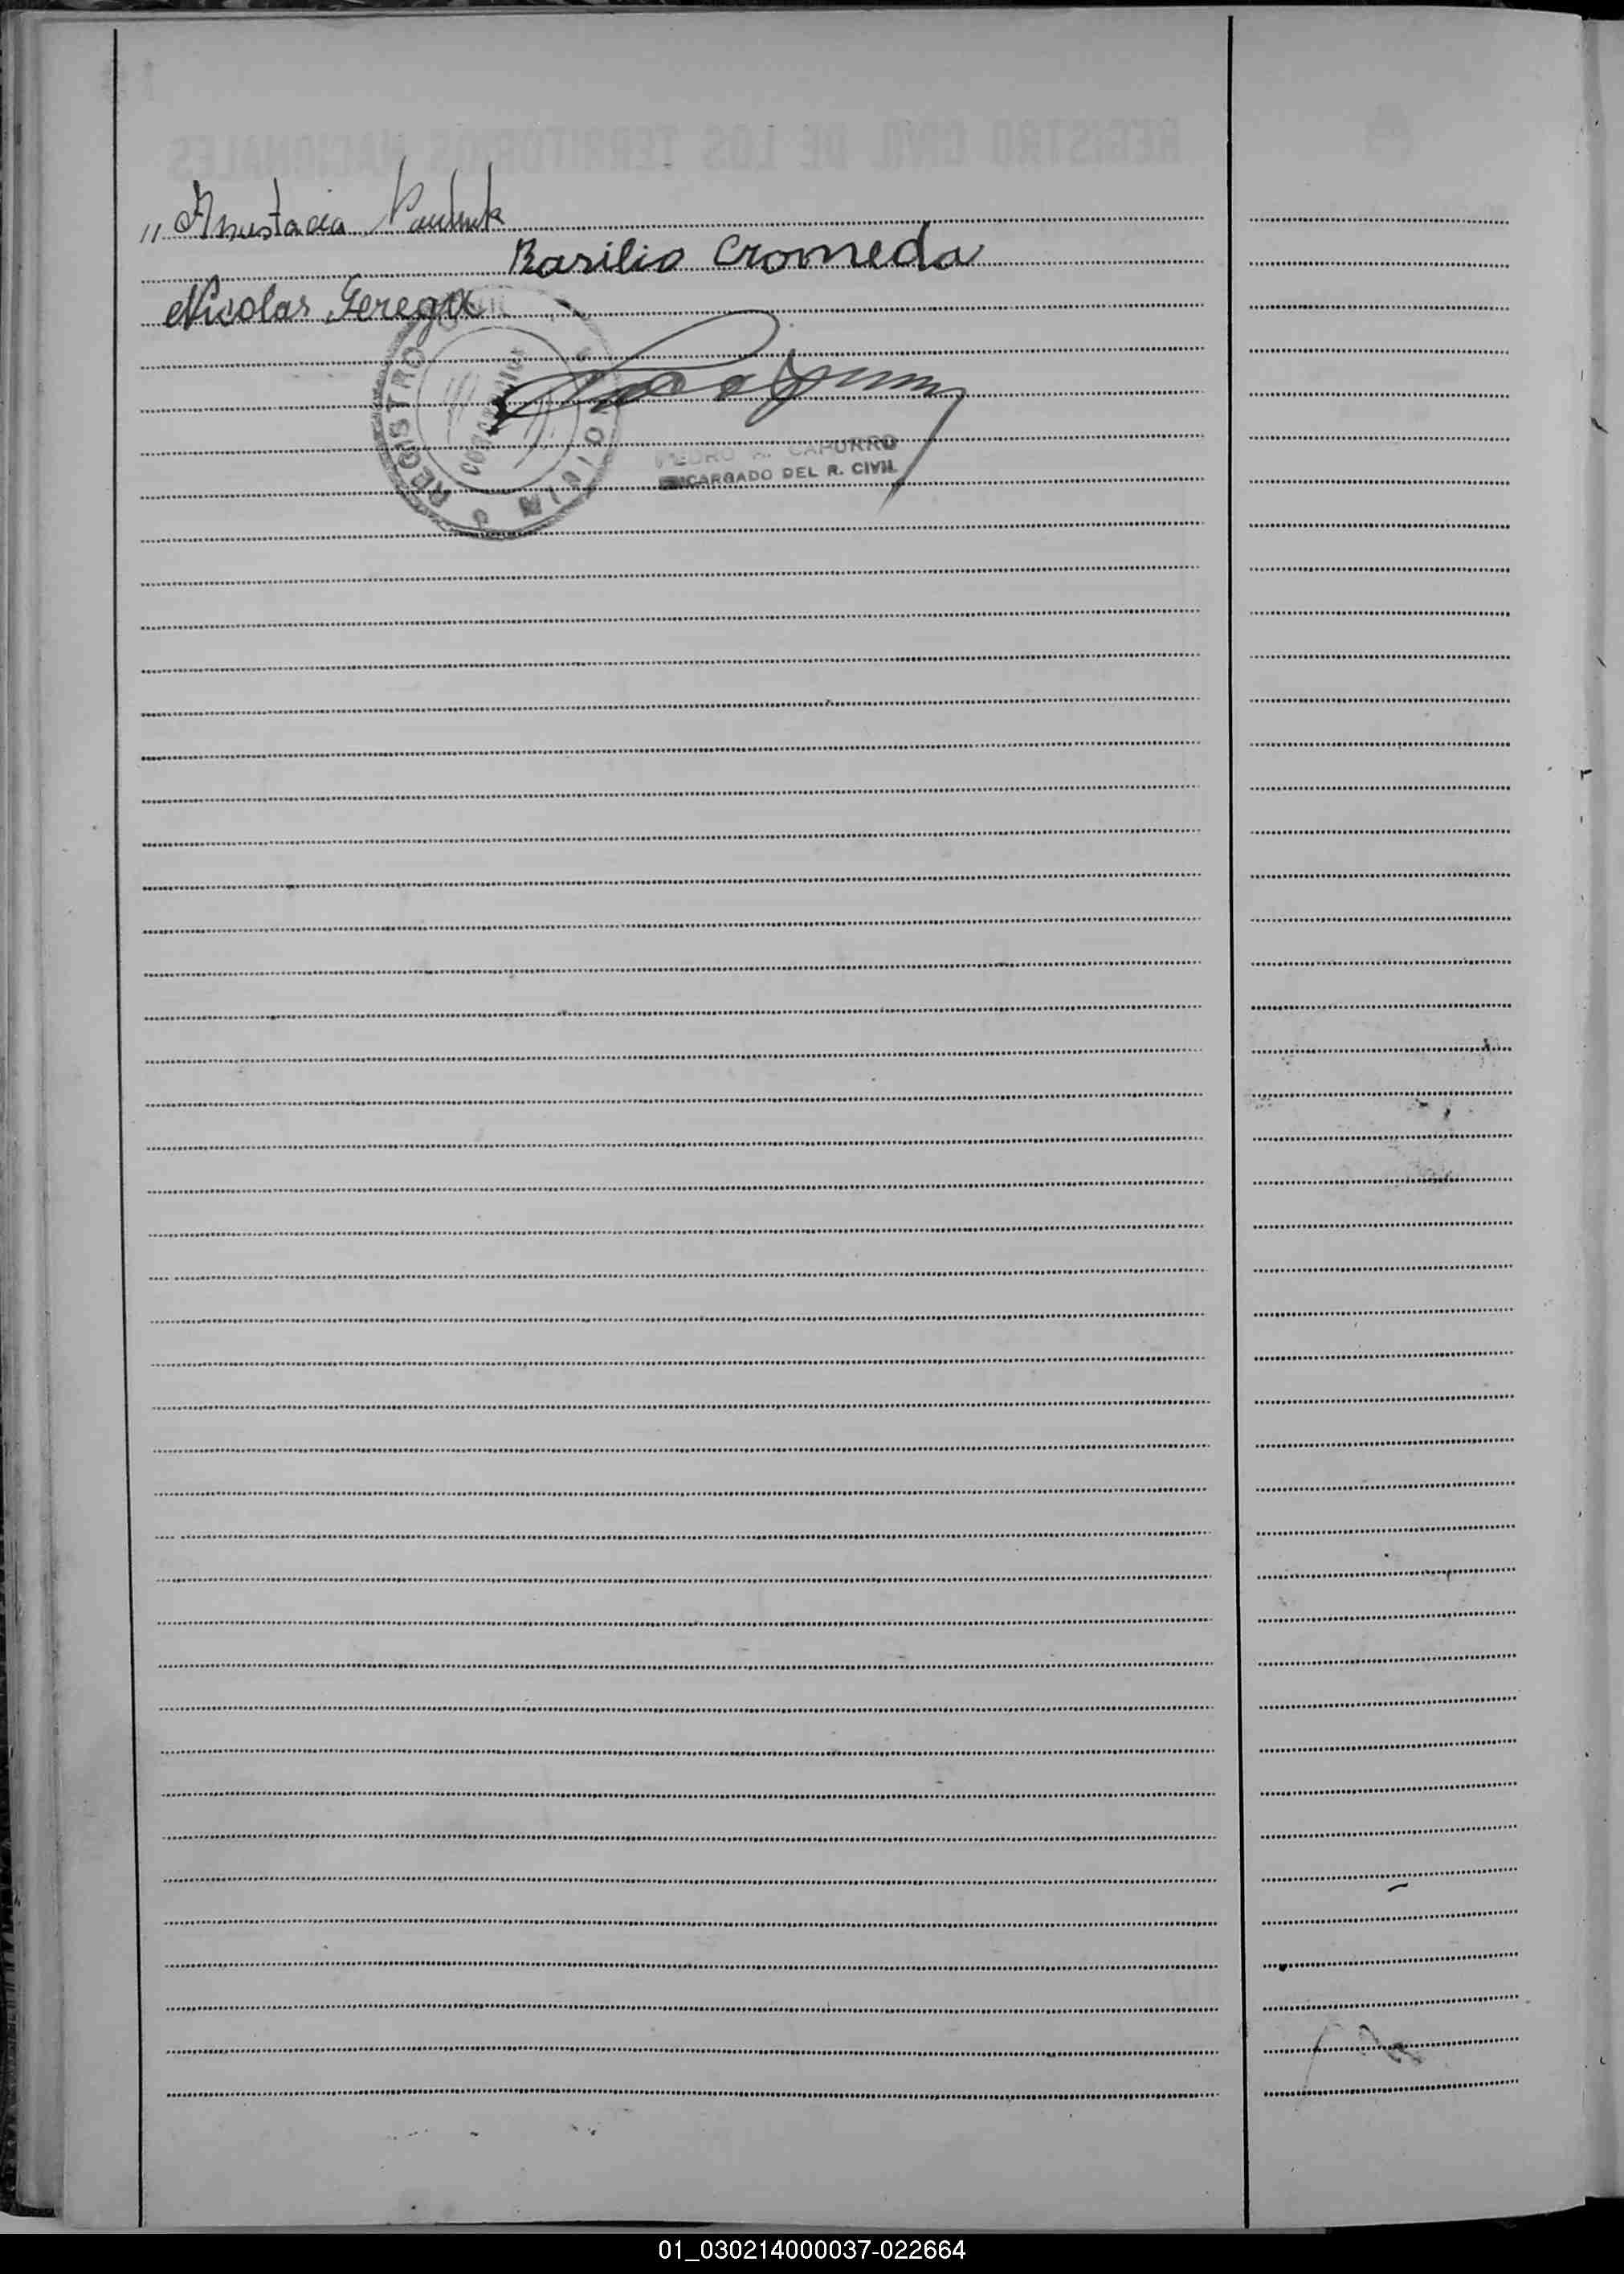 " Anustacia Pauluk
Basilio Cromeda
Nicolas Gerega
REGISTRO CIVIL
MISIONES
PEDRO A. CAPURRO
ENCARGADO DEL R. CIVIL
01_030214000037-022664